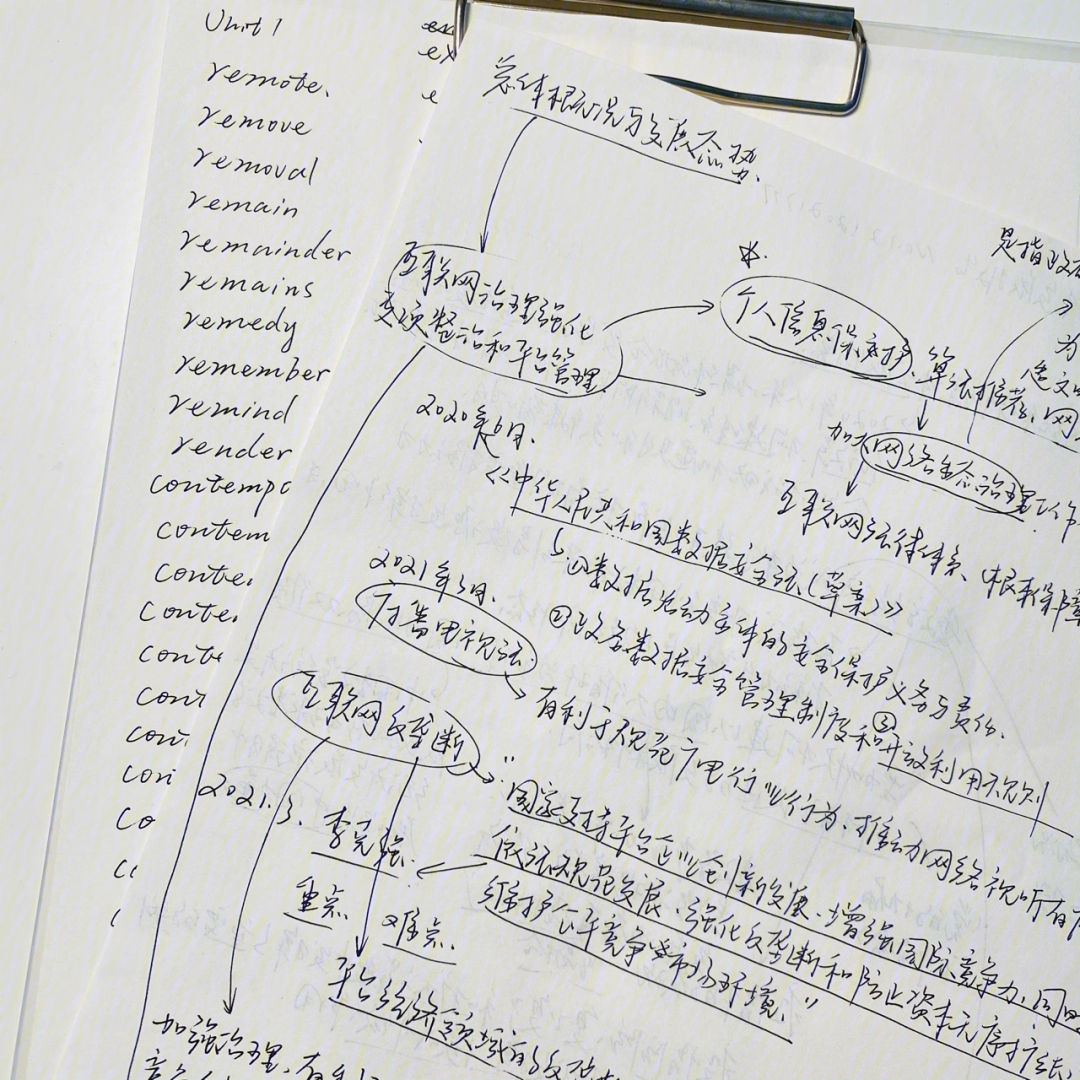 Unit 1
remote.
remove
removal
remain
remainder
remains
remedy
remember
remind
render
contempo
contem
conte
conte
conte
cont
con
con
co
ex
e
总体概况与发展态势.
互联网治理强化
专项整治和平台管理
个人信息保护、算法推荐、网
是指政
为
加大网络生态治理工作
互联网法律体系、根本保障
2020年6月.
《中华人民共和国数据安全法(草案)》
①数据活动主体的安全保护义务与责任.
②政务数据安全管理制度和③开放利用规则
2021年3月.
广播电视法
有利于规范广电行业行为、推动网络视听有
互联网反垄断
2021.3. 李克强.
"国家支持平台企业创新发展、增强国际竞争力、同时
依法规范发展、强化反垄断和防止资本无序扩张.
维护公平竞争市场环境."
重点
难点.
平台经济领域的反垄断
加强治理、有